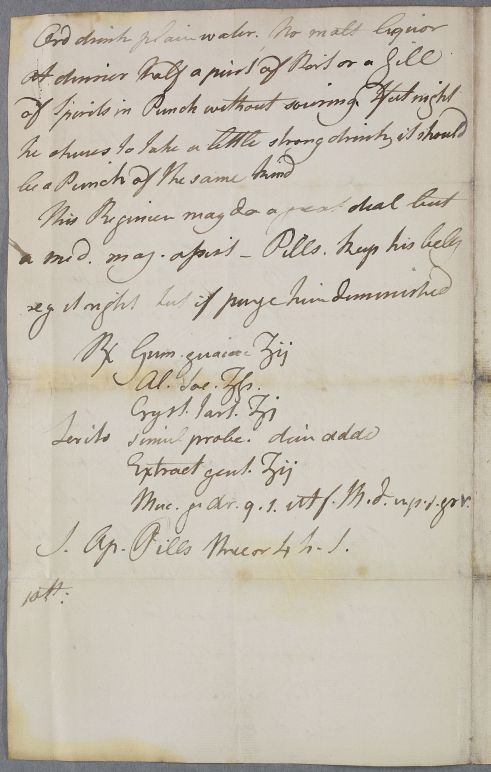 Ord drink plain water. No malt liquor
at dinner half a pint of Port or a Gill
of Spirits in Punch without souring. If at night
he chuses to take a little strong drink, it should
be a Punch of the same kind
This Regimen may do a great deal but
a med. may assist - Pills. keep his belly
reg at night but if purge him diminished
Rx Gum. guaiac ʒij
Al. Soc. ʒſs.
Cryst. tart. ʒj
Terito simul probe. dein adde
Extract gent. ʒij
Muc. g. ar. q. s. ut f. M. d. in p. s. gr v.
S. Ap. Pills three or 4 h. s.
10th: